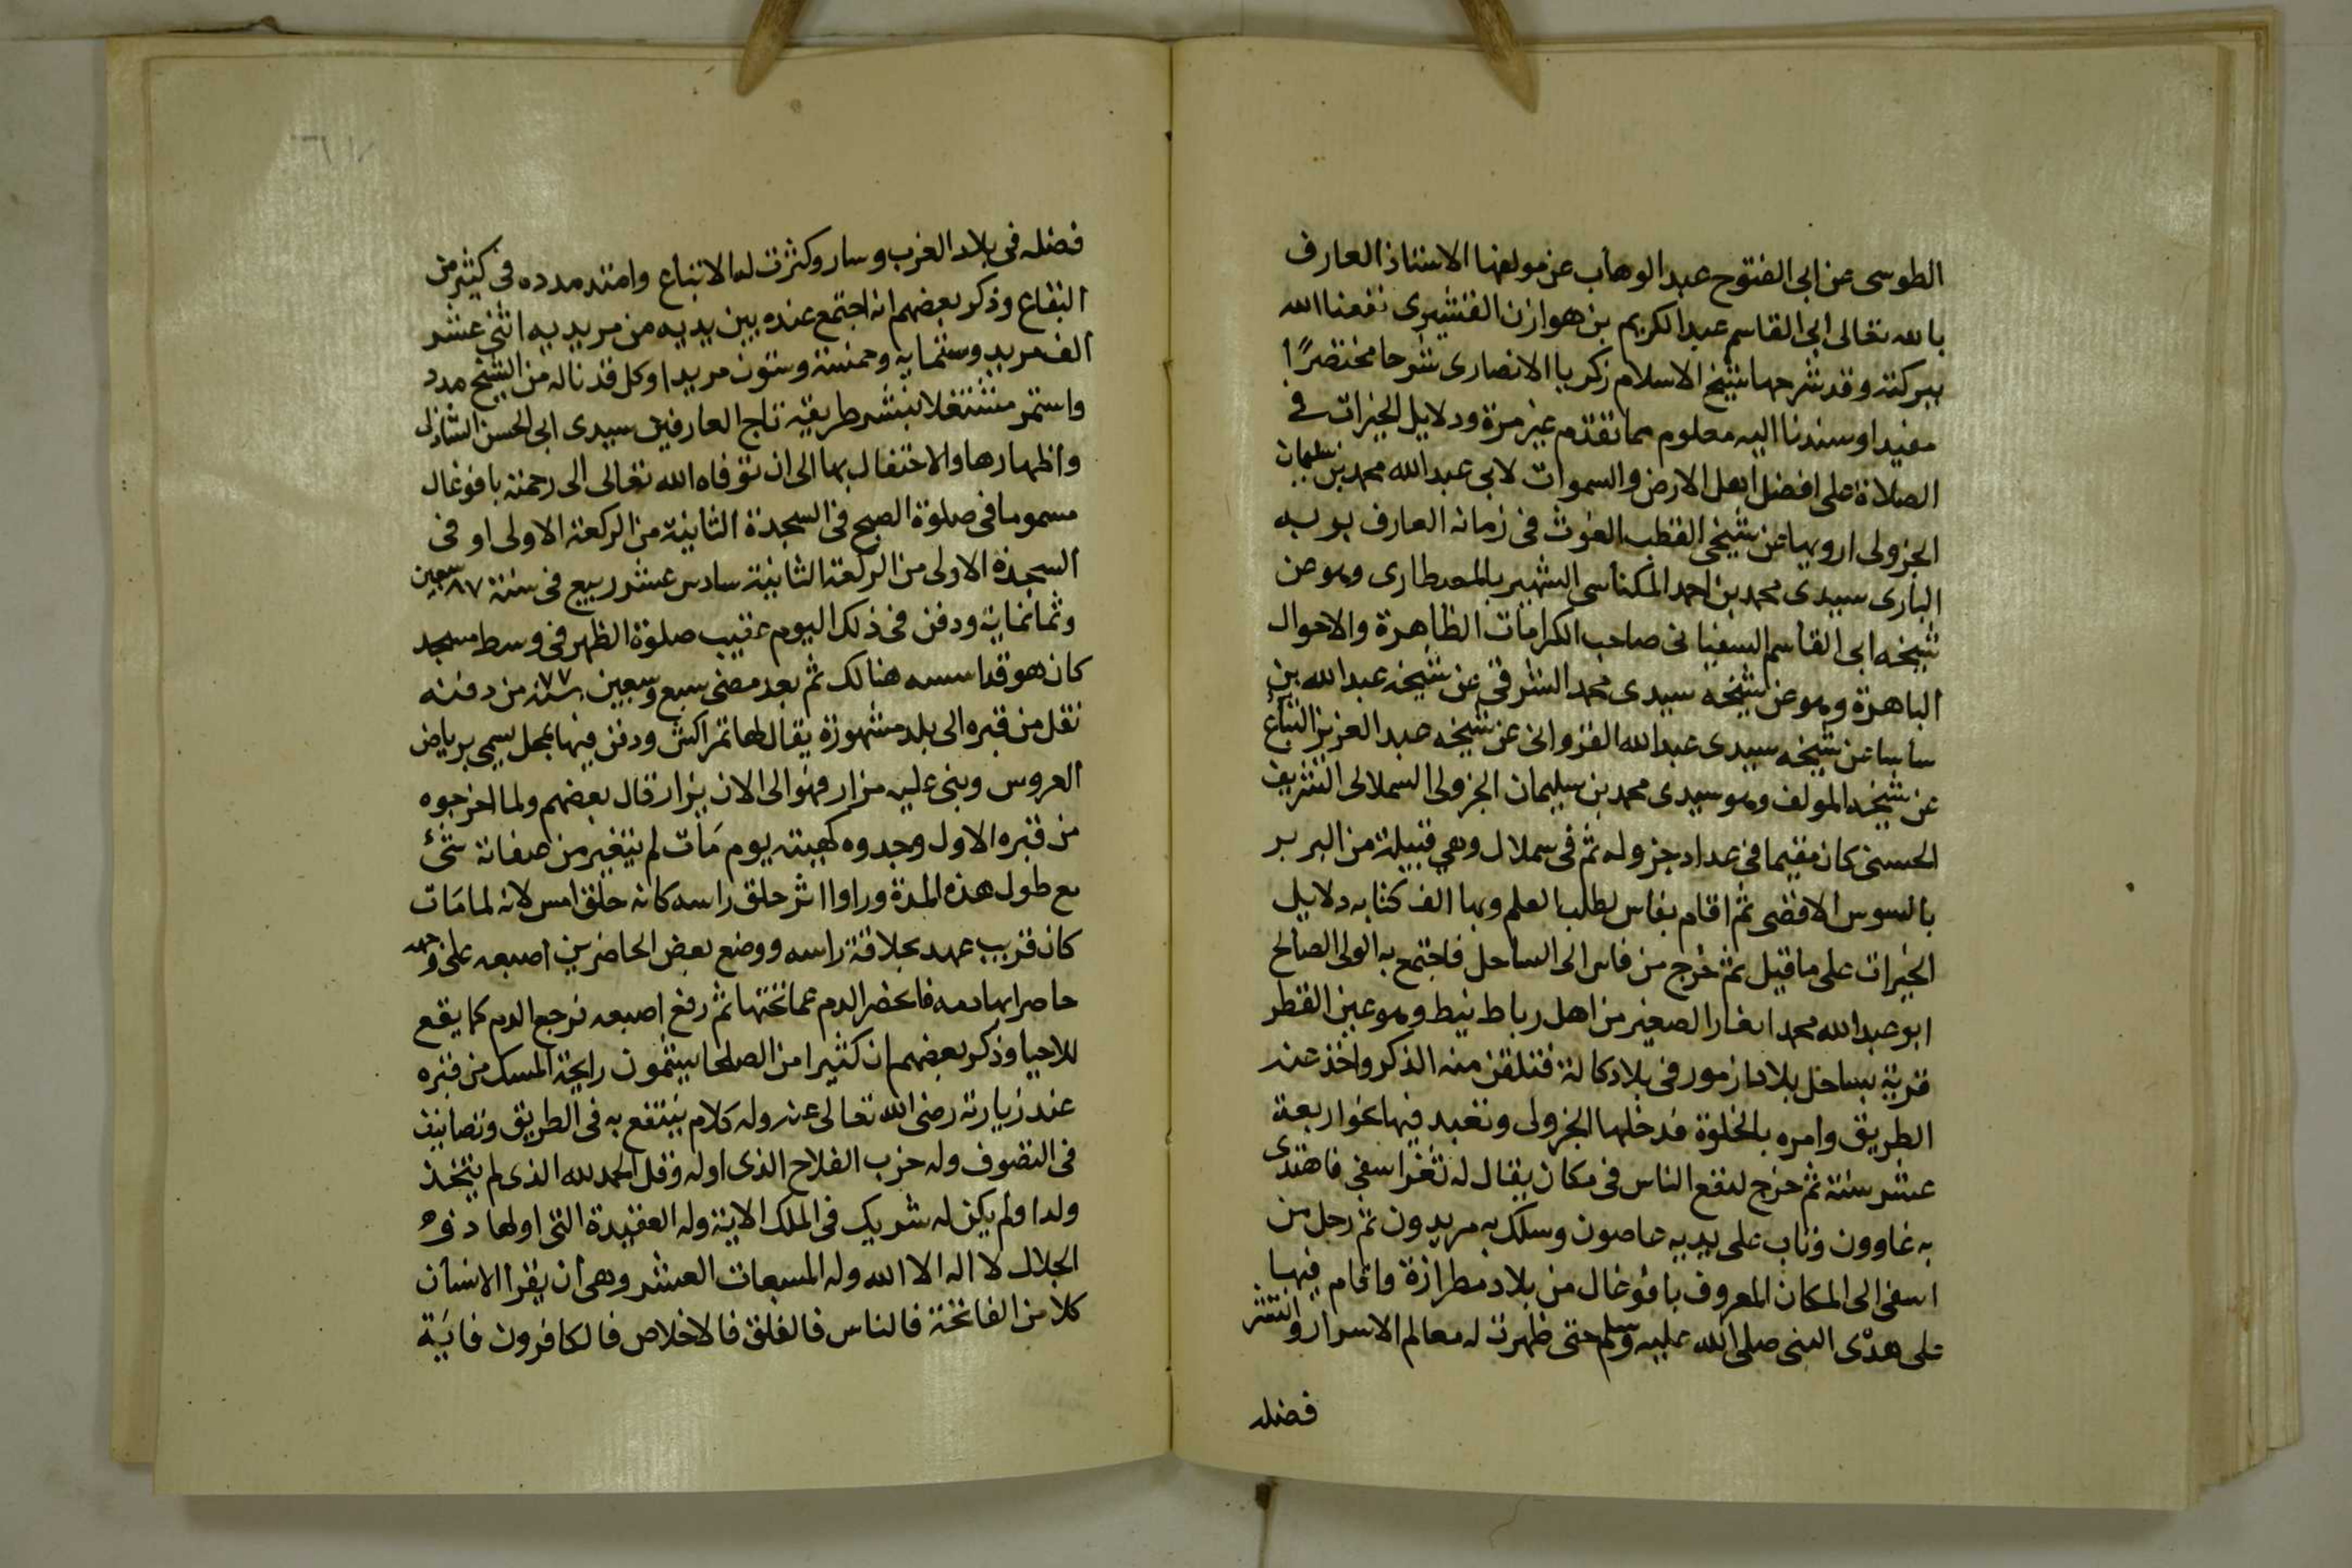 الطوسى عن ابى الفتوح عبد الوهاب عن مولفها الاستاذ العارف
بالله تعالى ابى القاسم عبد الكريم بن هوازن القشيرى نفعنا الله
ببركته وقد شرحها شيخ الاسلام زكريا الانصارى شرحا مختصرًا
مفيدا وسندنا اليه معلوم مما تقدم غير مرة ودلايل الخيرات فى
الصلاة على افضل اهل الارض والسموات لابى عبد الله محمد بن سليمان
الجزولى ارويها عن شيخى القطب الغوث فى زمانه العارف بربه
البارى سيدى محمد بن احمد المكناسى الشهير بالمعطارى وهو عن
شيخه ابى القاسم السفيانى صاحب الكرامات الظاهرة والاحوال
الباهرة وهو عن شيخه سيدى محمد الشرقى عن شيخه عبد الله بن
ساسا عن شيخه سيدى عبد الله الغزوانى عن شيخه عبد العزيز التباع
عن شيخه المولف وهو سيدى محمد بن سليمان الجزولى السملالى الشريف
الحسنى كان مقيما فى عداد جزوله ثم فى سملال وهي قبيلة من البربر
بالسوس الاقصى ثم اقام بفاس لطلب العلم وبها الف كتابه دلايل
الخيرات على ما قيل ثم خرج من فاس الى الساحل فاجتمع به الولى الصالح
ابو عبد الله محمد امغار الصغير من اهل رباط تيط وهو عين القطر
قرية بساحل بلاد ازمور فى بلاد دكالة فتلقن منه الذكر واخذ عنه
الطريق وامره بالخلوة فدخلها الجزولى وتعبد فيها نحو اربعة
عشر سنة ثم خرج لنفع الناس فى مكان يقال له ثغر اسفى فاهتدى
به غاوون وتاب على يديه عاصون وسلك به مريدون ثم رحل من
اسفى الى المكان المعروف بافوغال من بلاد مطرازة واقام فيها
على هدى النبى صلى الله عليه وسلم حتى ظهرت له معالم الاسرار وانتشر
فضله
فضله فى بلاد الغرب وسار وكثرت له الاتباع وامتد مدده فى كثير من
البقاع وذكر بعضهم انه اجتمع عنده بين يديه من مريديه اثنى عشر
الف مريد وستماية وخمسة وستون مريدا وكل قد ناله من الشيخ مدد
واستمر مشتغلا بنشر طريقة تاج العارفين سيدى ابى الحسن الشاذلى
واظهارها والاحتفال بها الى ان توفاه الله تعالى الى رحمته بافوغال
مسموما فى صلوة الصبح فى السجدة الثانية من الركعة الاولى او فى
السجدة الاولى من الركعة الثانية سادس عشر ربيع فى سنة ٨٧ سبعين
وثمانماية ودفن فى ذلك اليوم عقيب صلوة الظهر فى وسط مسجد
كان هو قد اسسه هنالك ثم بعد مضى سبع وسبعين ٧٧ سنة من دفنه
نقل من قبره الى بلد مشهورة يقال لها تمراكش ودفن فيها بمحل يسمى برياض
العروس وبنى عليه مزار فهو الى الان يزار قال بعضهم ولما اخرجوه
من قبره الاول وجدوه كهيئته يوم مات لم يتغير من صفاته شئ
مع طول هذه المدة وراوا اثر حلق راسه كانه حلق امس لانه لما مات
كان قريب عهد بحلاقة راسه ووضع بعض الحاضرين اصبعه على وجهه
حاصرا بها دمه فانحصر الدم عما تحتها ثم رفع اصبعه فرجع الدم كما يقع
للاحيا وذكر بعضهم ان كثيرا من الصلحا يشمون رايحة المسك من قبره
عند زيارته رضى الله تعالى عنه وله كلام ينتفع به فى الطريق وتصانيف
فى التصوف وله حزب الفلاح الذى اوله وقل الحمد لله الذى لم يتخذ
ولدا ولم يكن له شريك فى الملك الاية وله العقيدة التى اولها ذو
الجلال لا اله الا الله وله المسبعات العشر وهى ان يقرا الانسان
كلا من الفاتحة فالناس فالفلق فالاخلاص فالكافرون فاية